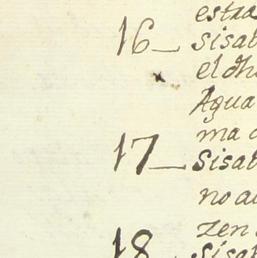 estra
16_ sisab
el dho
Agua
ma
17_ sisab
no a
zen
18_ sisab